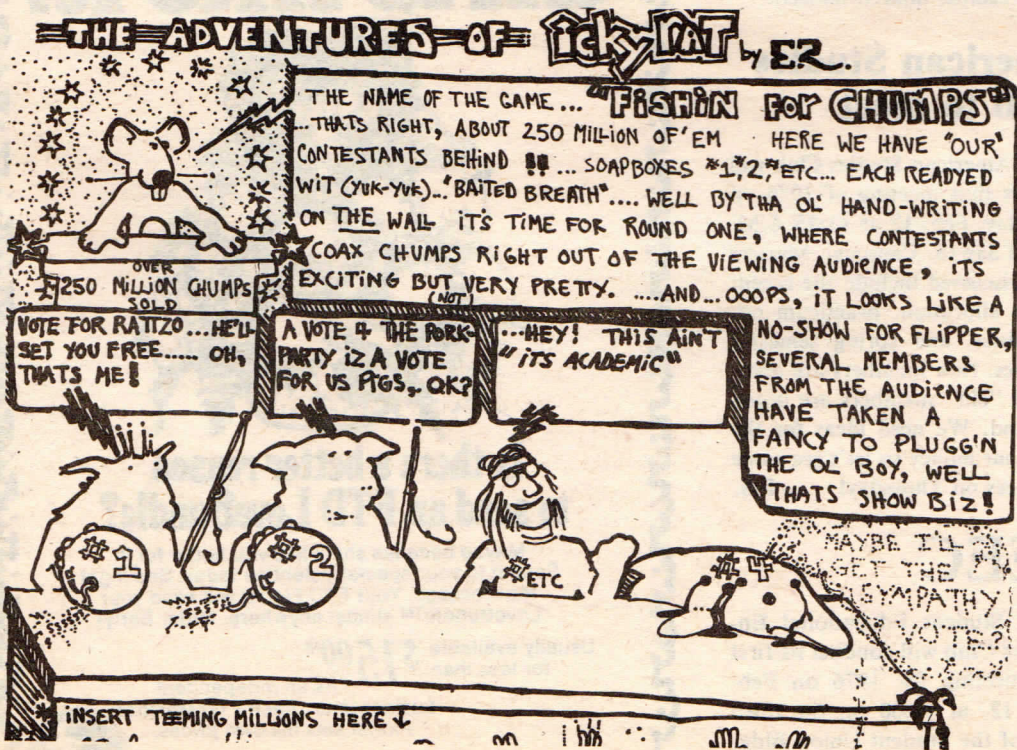 THE ADVENTURES OF ickY RAT by EZ.
THE NAME OF THE GAME... "FiSHiN FoR CHUMPS"
...THATS RIGHT, ABOUT 250 MILLION OF'EM HERE WE HAVE "OUR"
CONTESTANTS BEHIND !! ... SOAPBOXES #1, #2, #ETC... EACH READYED
WiT (YUK-YUK)..."BAITED BREATH"..... WELL BY THA OL' HAND-WRITING
ON THE WALL IT'S TiME FOR ROUND ONE, WHERE CONTESTANTS
COAX CHUMPS RIGHT OUT OF THE VIEWING AUDIENCE, ITS
EXCITING BUT VERY PRETTY. ....AND...OOOPS, IT LOOKS LIKE A
(NOT)
NO-SHOW FOR FLIPPER,
SEVERAL MEMBERS
FROM THE AUDIENCE
HAVE TAKEN A
FANCY TO PLUGG'N
THE OL' BOY, WELL
THATS SHOW BiZ!
OVER
250 MILLION CHUMPS
SOLD
VOTE FOR RATTZO...HE'LL
SET YOU FREE..... OH,
THATS ME!
A VOTE 4 THE PORK-
PARTY iZ A VOTE
FOR US PIGS... OK?
...HEY! THIS AIN'T
"ITS ACADEMIC"
#1
#2
#ETC
#4
MAYBE I'LL
GET THE
SYMPATHY
VOTE?
iNSERT TEEMING MILLIONS HERE ↓